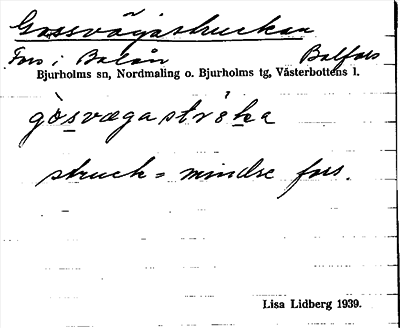 Gossvägastruckan
Fors i Balån Balfors
Bjurholms sn, Nordmaling o. Bjurholms tg, Västerbottens l.
gòsvægastrs̀ka
struck = mindre fors.
Lisa Lidberg 1939.